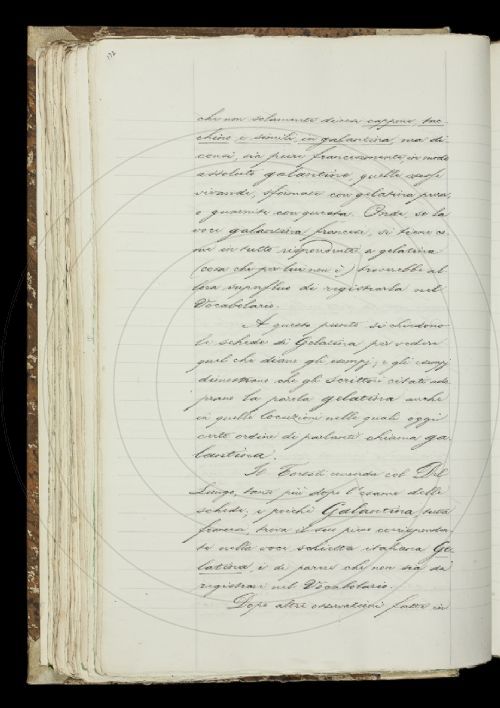 132
che non solamente dicesi cappone, tac
chino e simili, in galantina, ma di
consi, sia pure francesemente, in modo
assoluto galantine, quelle stesse
vivande, sformate con gelatina pura,
o guarnite con questa. Onde, se la
voce galantina francese, si tiene co
me in tutto rispondente a gelatina
(cosa che per lui non è) troverebbe al
lora superfluo di registrarla nel
Vocabolario.
A questo punto si chiedono
le schede di Gelatina per vedere
quel che diano gli esempj; e gli esempj
dimostrano che gli scrittori citati ado
prano la parola gelatina anche
in quelle locuzioni nelle quali oggi
certo ordine di parlanti chiama ga
lantina.
Il Tortoli concorda col Del
Lungo, tanto più dopo l'esame delle
schede, e perchè Galantina, tutta
francese, trova il suo pieno corrisponden
te nella voce schietta italiana Ge
latina è di parere che non sia da
registrarsi nel Vocabolario.
Dopo altre osservazioni fatte in